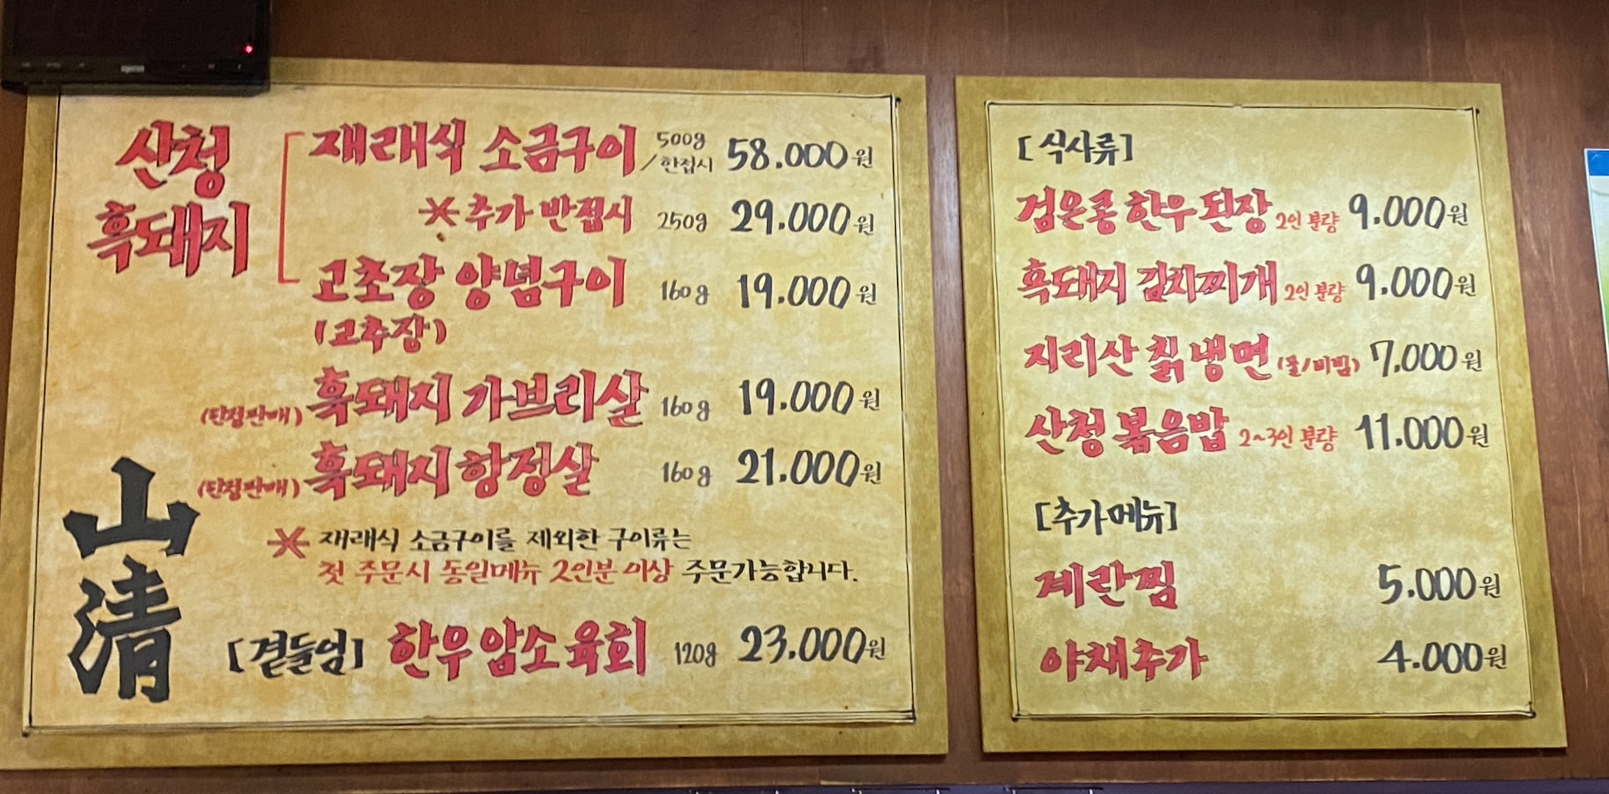 산청
흑돼지
재래식 소금구이 500g/한접시 58.000원
※추가 반접시 250g 29.000원
고초장 양념구이 160g 19.000원
(고추장)
(한정판매) 흑돼지 가브리살 160g 19.000원
(한정판매) 흑돼지 항정살 160g 21.000원
※ 재래식 소금구이를 제외한 구이류는
첫 주문시 동일메뉴 2인분 이상 주문가능합니다.
[곁들임] 한우암소육회 120g 23.000원
山
清
[식사류]
검은콩 한우 된장 2인 분량 9.000원
흑돼지 김치찌개 2인 분량 9.000원
지리산 칡냉면 (물/비빔) 7.000원
산청 볶음밥 2~3인 분량 11.000원
[추가메뉴]
계란찜 5.000원
야채추가 4.000원